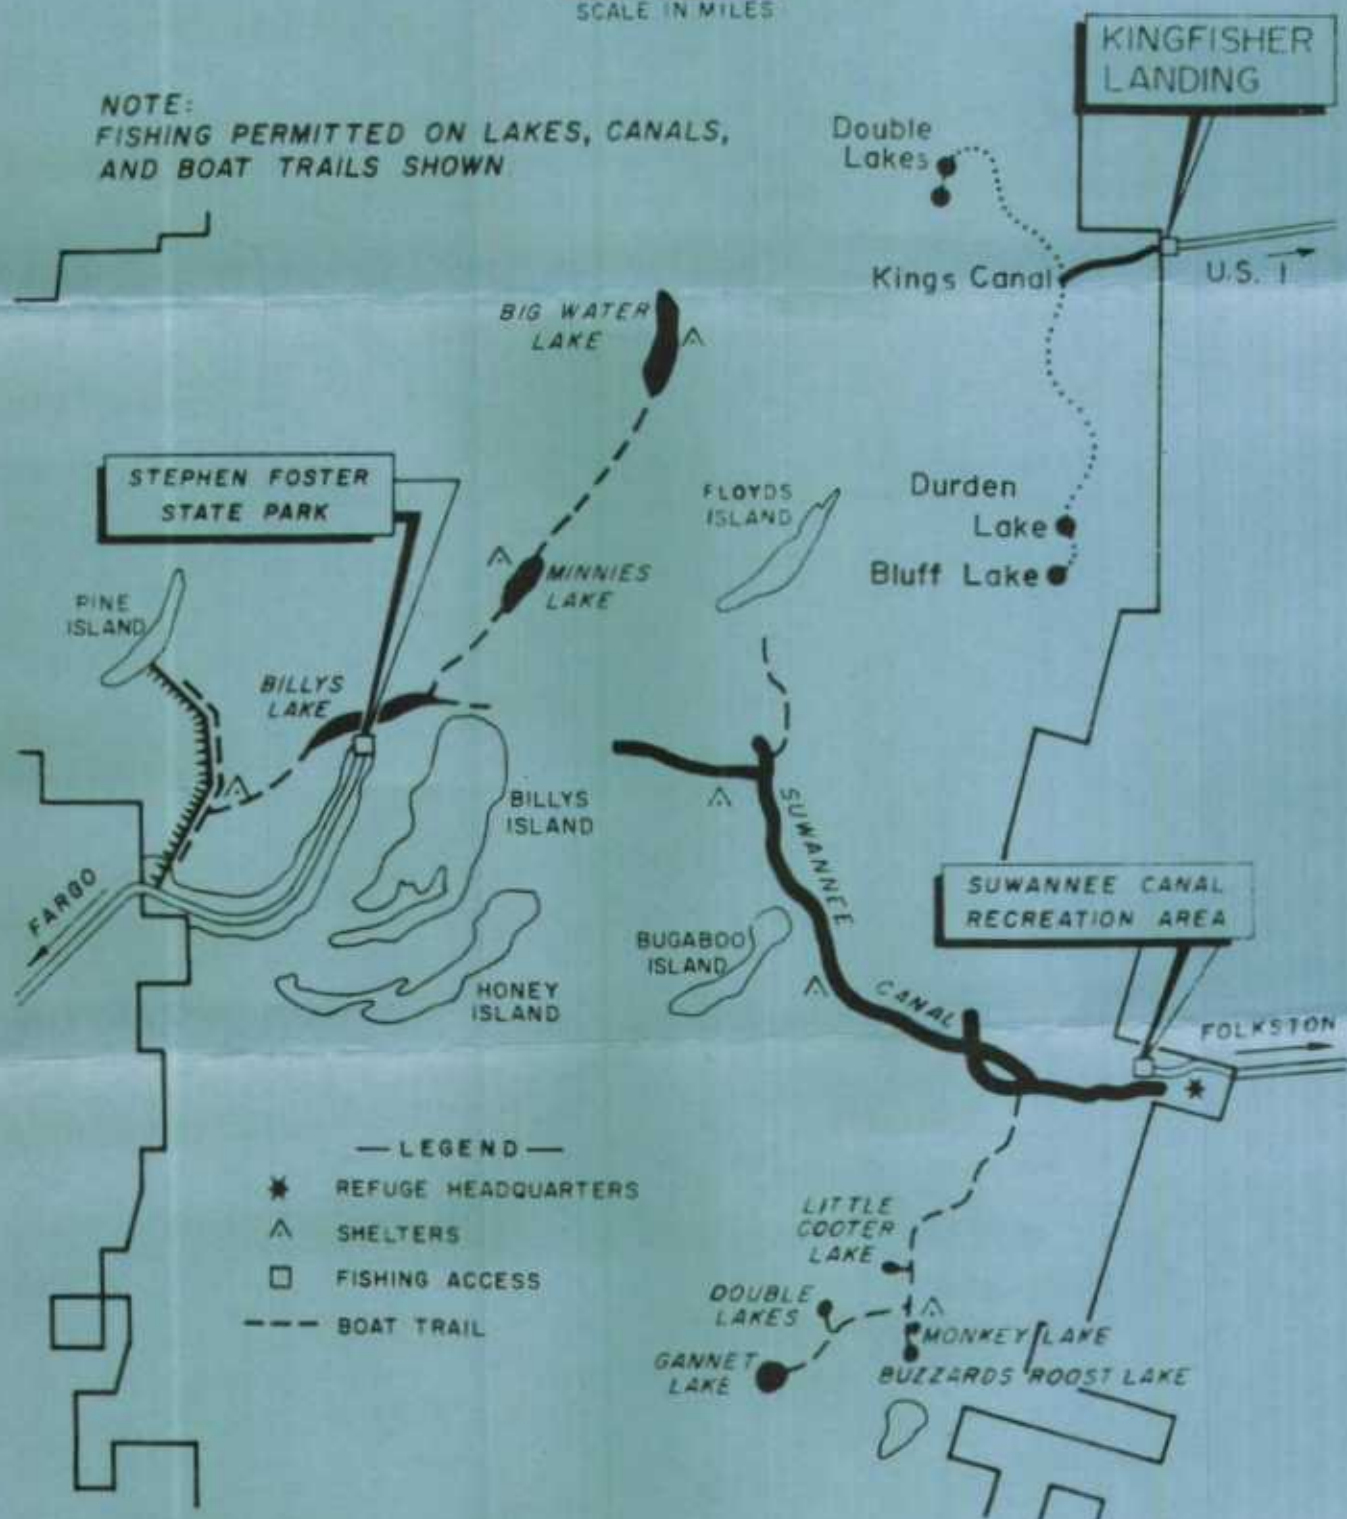 SCALE IN MILES
KINGFISHER
LANDING
NOTE:
FISHING PERMITTED ON LAKES, CANALS,
AND BOAT TRAILS SHOWN
Double
Lakes
Kings Canal
U.S. 1
BIG WATER
LAKE
STEPHEN FOSTER
STATE PARK
FLOYDS
ISLAND
Durden
Lake
Bluff Lake
MINNIES
LAKE
PINE
ISLAND
BILLYS
LAKE
BILLYS
ISLAND
SUWANNEE
CANAL
FARGO
SUWANNEE CANAL
RECREATION AREA
BUGABOO
ISLAND
HONEY
ISLAND
FOLKSTON
— LEGEND —
REFUGE HEADQUARTERS
SHELTERS
FISHING ACCESS
BOAT TRAIL
LITTLE
COOTER
LAKE
DOUBLE
LAKES
MONKEY LAKE
GANNET
LAKE
BUZZARDS ROOST LAKE